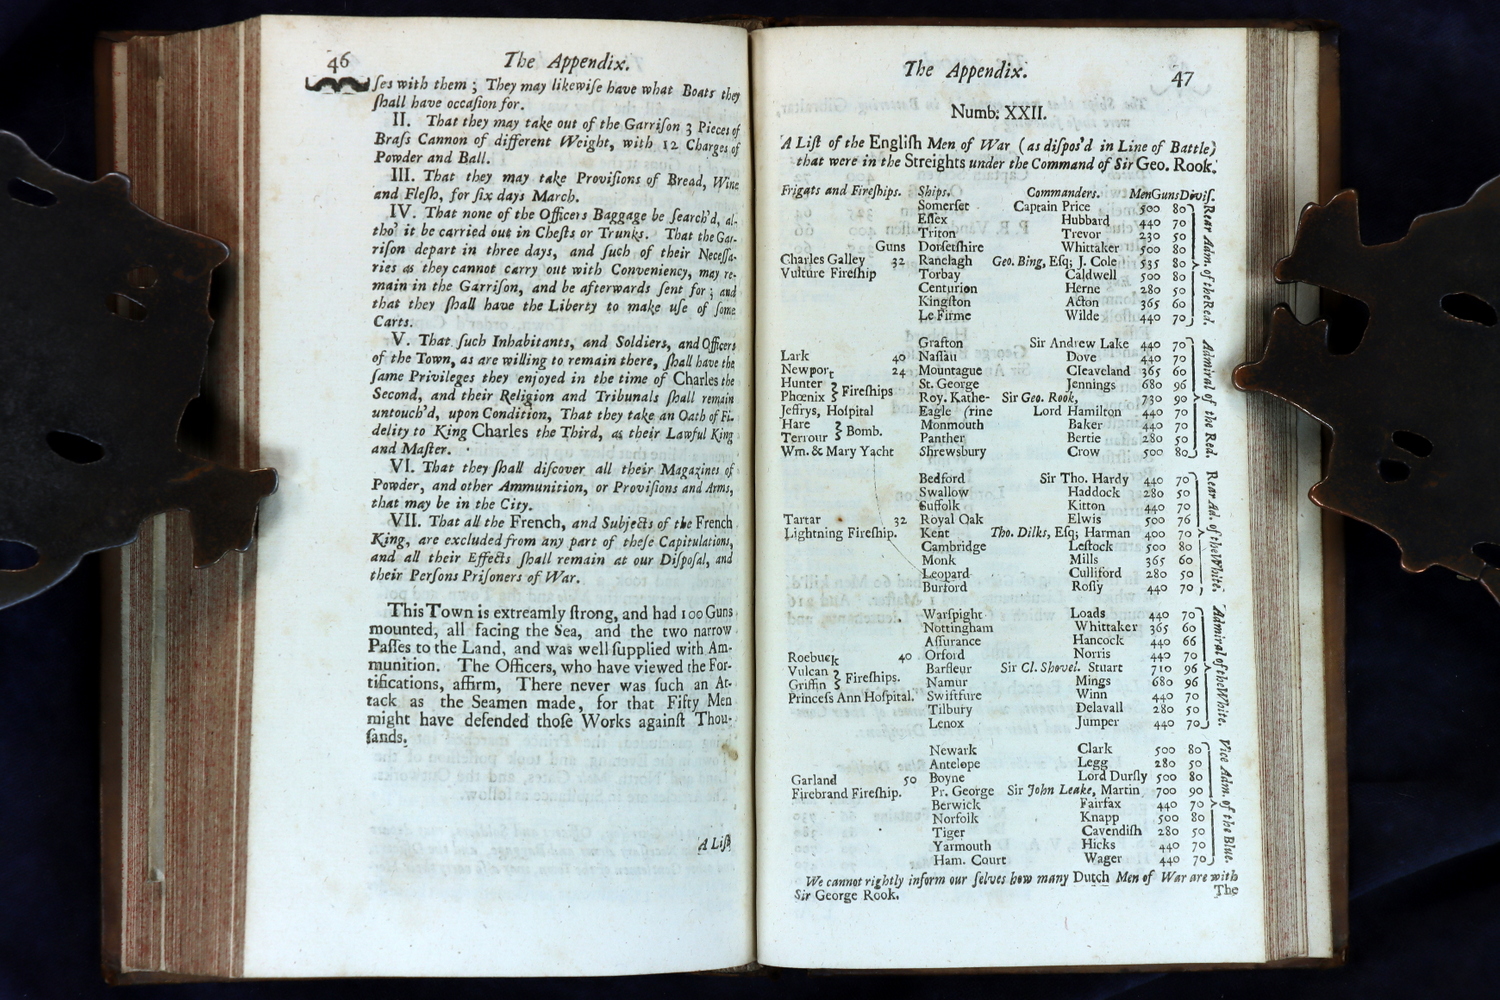 46 The Appendix.
ſes with them ; They may likewiſe have what Boats they
ſhall have occaſion for.
II. That they may take out of the Garriſon 3 Pieces of
Braſs Cannon of different Weight, with 12 Charges of
Powder and Ball.
III. That they may take Proviſions of Bread, Wine
and Fleſh, for ſix days March.
IV. That none of the Officers Baggage be ſearch'd, al-
tho' it be carried out in Cheſts or Trunks. That the Gar-
riſon depart in three days, and ſuch of their Neceſſa-
ries as they cannot carry out with Conveniency, may re-
main in the Garriſon, and be afterwards ſent for ; and
that they ſhall have the Liberty to make uſe of ſome
Carts.
V. That ſuch Inhabitants, and Soldiers, and Officers
of the Town, as are willing to remain there, ſhall have the
ſame Privileges they enjoyed in the time of Charles the
Second, and their Religion and Tribunals ſhall remain
untouch'd, upon Condition, That they take an Oath of Fi-
delity to King Charles the Third, as their Lawful King
and Maſter.
VI. That they ſhall diſcover all their Magazines of
Powder, and other Ammunition, or Proviſions and Arms,
that may be in the City.
VII. That all the French, and Subjects of the French
King, are excluded from any part of theſe Capitulations,
and all their Effects ſhall remain at our Diſpoſal, and
their Perſons Priſoners of War.
This Town is extreamly ſtrong, and had 100 Guns
mounted, all facing the Sea, and the two narrow
Paſſes to the Land, and was well ſupplied with Am-
munition. The Officers, who have viewed the For-
tifications, affirm, There never was ſuch an At-
tack as the Seamen made, for that Fifty Men
might have defended thoſe Works againſt Thou-
ſands.
A Liſt
The Appendix. 47
Numb: XXII.
A Liſt of the Engliſh Men of War (as diſpos'd in Line of Battle)
that were in the Streights under the Command of Sir Geo. Rook.
Frigats and Fireſhips. Ships. Commanders. Men Guns Diviſ.
Somerſet Captain Price 500 80
Eſſex Hubbard 440 70
Triton Trevor 230 50
Guns Dorſetſhire Whittaker 500 80
Charles Galley 32 Ranelagh Geo. Bing, Eſq; J. Cole 535 80
Vulture Fireſhip Torbay Caldwell 500 80
Centurion Herne 280 50
Kingſton Acton 365 60
Le Firme Wilde 440 70
Rear Adm. of the Red.
Grafton Sir Andrew Lake 440 70
Lark 40 Naſſau Dove 440 70
Newport 24 Mountague Cleaveland 365 60
Hunter St. George Jennings 680 96
Phœnix } Fireſhips Roy. Kathe- Sir Geo. Rook, 730 90
Jeffrys, Hoſpital Eagle (rine Lord Hamilton 440 70
Hare Monmouth Baker 440 70
Terrour } Bomb. Panther Bertie 280 50
Wm. & Mary Yacht Shrewsbury Crow 500 80
Admiral of the Red.
Bedford Sir Tho. Hardy 440 70
Swallow Haddock 280 50
Suffolk Kitton 440 70
Tartar 32 Royal Oak Elwis 500 76
Lightning Fireſhip. Kent Tho. Dilks, Eſq; Harman 400 70
Cambridge Leſtock 500 80
Monk Mills 365 60
Leopard Culliford 280 50
Burford Roſſy 440 70
Rear Ad. of the White.
Warſpight Loads 440 70
Nottingham Whittaker 365 60
Aſſurance Hancock 440 66
Roebuck 40 Orford Norris 440 70
Vulcan Barfleur Sir Cl. Shovel. Stuart 710 96
Griffin } Fireſhips. Namur Mings 680 96
Princeſs Ann Hoſpital. Swiftſure Winn 440 70
Tilbury Delavall 280 50
Lenox Jumper 440 70
Admiral of the White.
Newark Clark 500 80
Antelope Legg 280 50
Garland 50 Boyne Lord Durſly 500 80
Firebrand Fireſhip. Pr. George Sir John Leake, Martin 700 90
Berwick Fairfax 440 70
Norfolk Knapp 500 80
Tiger Cavendiſh 280 50
Yarmouth Hicks 440 70
Ham. Court Wager 440 70
Vice Adm. of the Blue.
We cannot rightly inform our ſelves how many Dutch Men of War are with
Sir George Rook.
The